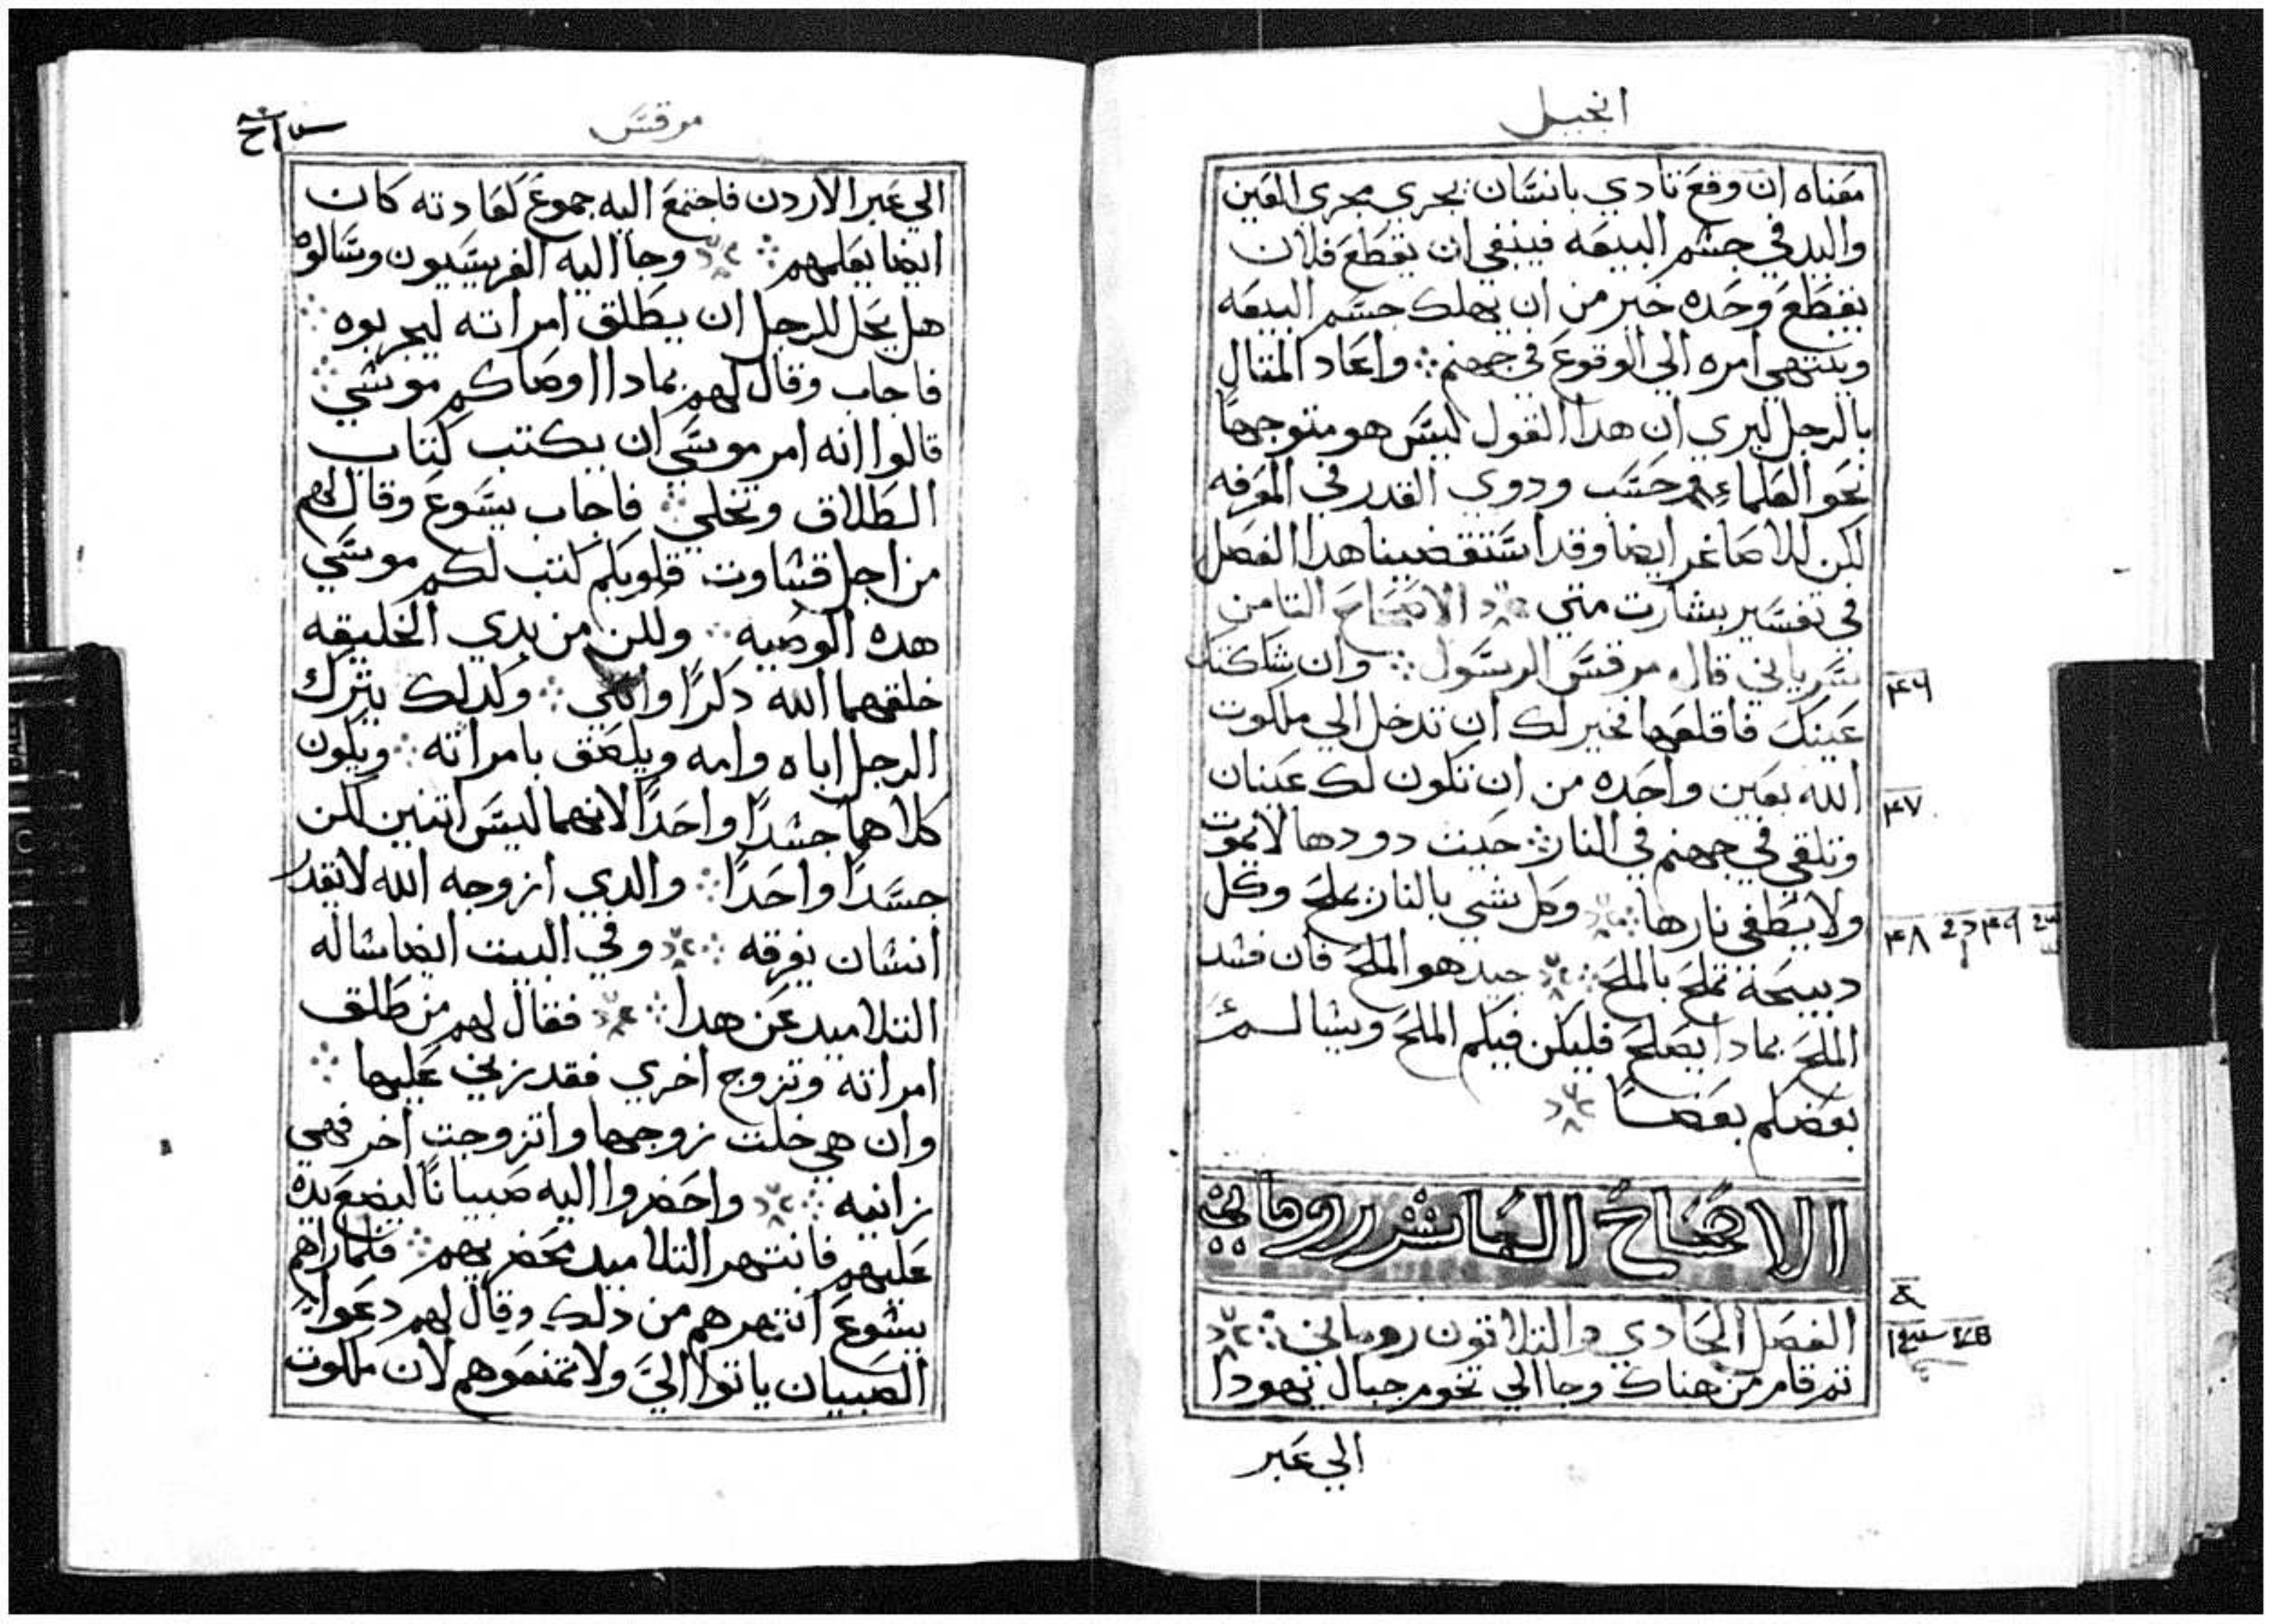 انجيل
معناه ان وقع تادي بانسان يجري مجري العين
واليد في جسم البيعه فينبغي ان يقطع فلان
يقطع وحده خير من ان يهلك جسم البيعه
وينتهي امره الي الوقوع في جهنم واعاد المتال
بالرجل ليري ان هدا القول ليس هو متوجهاً
نحو العلماء حسب ودوي القدر في المعرفه
لكن للاصاغر ايضا وقد استقضينا هدا الفصل
في تفسير بشارت متي الاصحاح التامن
سرياني قال مرقس الرسول وان شككتك
عينك فاقلعها فخير لك ان تدخل الي ملكوت
الله بعين واحده من ان تكون لك عينان
وتلقي في جهنم في النار حيت دودها لا يموت
ولا يطفي ناريها وكل شي بالنار يملح وكل
دبيحة تملح بالملح جيد هو الملح فان فسد
الملح بمادا يصلح فليكن فيكم الملح ويسالم
بعضكم بعضاً
الاصحاح العاشر روماني
الفصل الحادي والتلاتون روماني
تم قام من هناك وجا الي تخوم جبال يهودا
الي عبر
مرقس
الي عبر الاردن فاجتمع اليه جموع كعادته كان
ايضا يعلمهم وجا اليه الفريسيون وسالوه
هل يحل للرجل ان يطلق امراته ليجربوه
فاجاب وقال لهم بمادا اوصاكم موسي
قالوا انه امر موسي ان يكتب كتاب
الطلاق وتخلي فاجاب يسوع وقال لهم
من اجل قساوت قلوبكم كتب لكم موسي
هده الوصيه ولكن من بدي الخليقه
خلقهما الله دكرًا وانتي ولدلك يترك
الرجل اباه وامه ويلصق بامراته ويكون
كلاهما جسدًا واحدًا لانهما ليس اتنين لكن
جسدًا واحدًا والدي ازوجه الله لا يقدر
انسان يفرقه وفي البيت ايضا ساله
التلاميد عن هدا فقال لهم من طلق
امراته وتزوج اخري فقد زني عليها
وان هي خلت زوجها واتزوجت اخر فهي
زانيه واحضروا اليه صبيانًا ليضع يده
عليهم فانتهر التلاميد محضريهم فلما راهم
يسوع انتهرهم من دلك وقال لهم دعوا
الصبيان ياتوا الي ولا تمنعوهم لان ملكوت